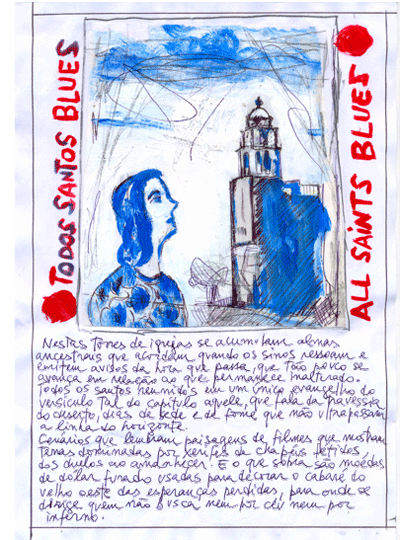 TODOS SANTOS BLUES
ALL SAINTS BLUES
Nestas torres de igrejas se acumulam almas
ancestrais que acordam quando os sinos ressoam e
emitem avisos da hora que passa, que tão pouco se
avança em relação ao que permanece inalterado.
Todos os santos reunidos em um único evangelho do
versículo tal do capítulo aquele, que fala da travessia
do deserto, dias de sede e de fome que não ultrapassam
a linha do horizonte.
Cenários que lembram paisagens de filmes que mostram
terras dominadas por xerifes de chapéus fétidos
dos duelos ao amanhecer. E o que sobra são moedas
de dólar furado usadas para decorar o cabaré do
velho oeste das esperanças perdidas, para onde se
dirige quem não busca nem por céu nem por
inferno.